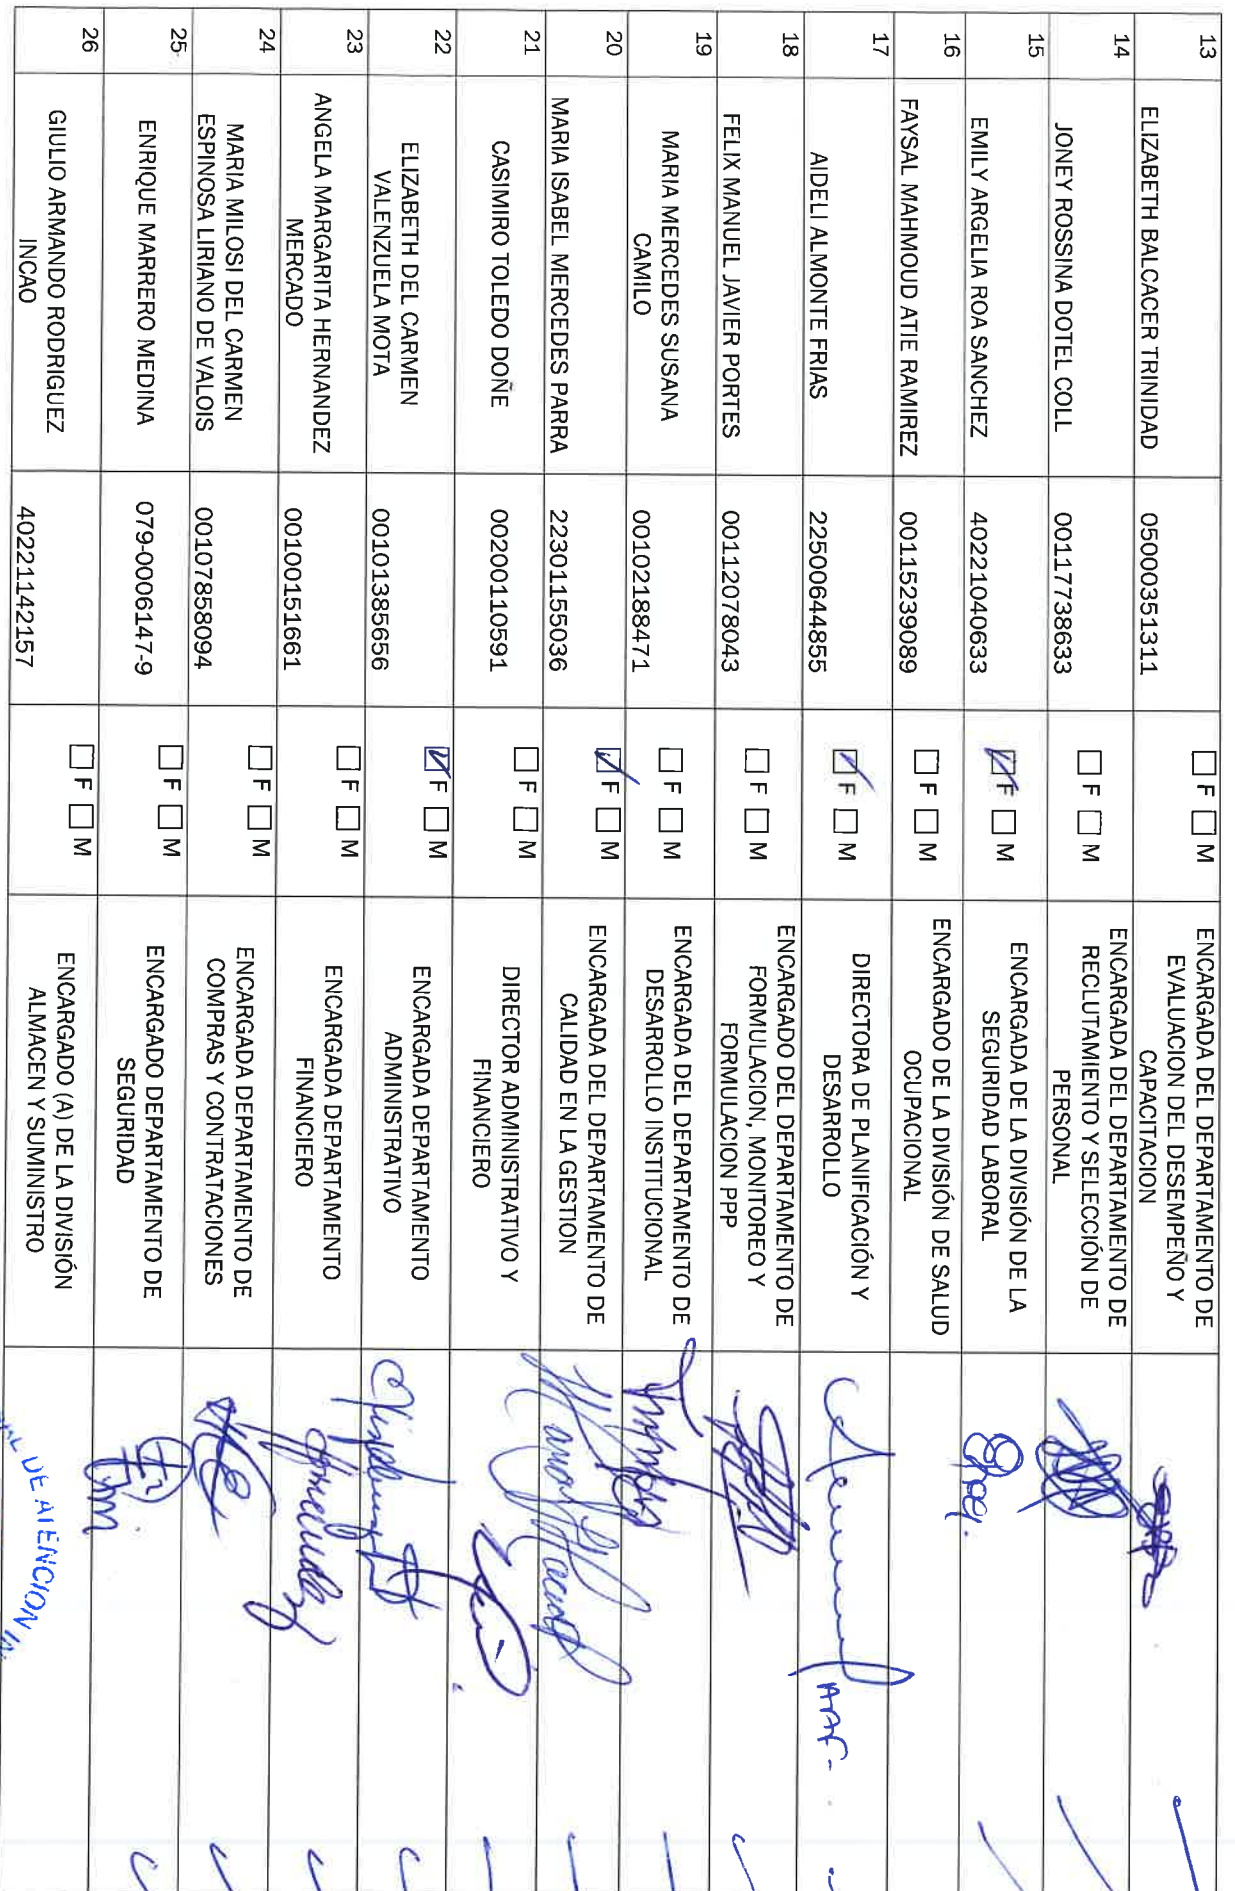 13
ELIZABETH BALCACER TRINIDAD
05000351311
F M
ENCARGADA DEL DEPARTAMENTO DE
EVALUACION DEL DESEMPEÑO Y
CAPACITACION
14
JONEY ROSSINA DOTEL COLL
00117738633
F M
ENCARGADA DEL DEPARTAMENTO DE
RECLUTAMIENTO Y SELECCIÓN DE
PERSONAL
15
EMILY ARGELIA ROA SANCHEZ
40221040633
F M
ENCARGADA DE LA DIVISIÓN DE LA
SEGURIDAD LABORAL
16
FAYSAL MAHMOUD ATIE RAMIREZ
00115239089
F M
ENCARGADO DE LA DIVISIÓN DE SALUD
OCUPACIONAL
17
AIDELI ALMONTE FRIAS
22500644855
F M
DIRECTORA DE PLANIFICACIÓN Y
DESARROLLO
18
FELIX MANUEL JAVIER PORTES
00112078043
F M
ENCARGADO DEL DEPARTAMENTO DE
FORMULACION, MONITOREO Y
FORMULACION PPP
19
MARIA MERCEDES SUSANA
CAMILO
00102188471
F M
ENCARGADA DEL DEPARTAMENTO DE
DESARROLLO INSTITUCIONAL
20
MARIA ISABEL MERCEDES PARRA
22301155036
F M
ENCARGADA DEL DEPARTAMENTO DE
CALIDAD EN LA GESTION
21
CASIMIRO TOLEDO DOÑE
00200110591
F M
DIRECTOR ADMINISTRATIVO Y
FINANCIERO
22
ELIZABETH DEL CARMEN
VALENZUELA MOTA
00101385656
F M
ENCARGADA DEPARTAMENTO
ADMINISTRATIVO
23
ANGELA MARGARITA HERNANDEZ
MERCADO
00100151661
F M
ENCARGADA DEPARTAMENTO
FINANCIERO
24
MARIA MILOSI DEL CARMEN
ESPINOSA LIRIANO DE VALOIS
00107858094
F M
ENCARGADA DEPARTAMENTO DE
COMPRAS Y CONTRATACIONES
25
ENRIQUE MARRERO MEDINA
079-0006147-9
F M
ENCARGADO DEPARTAMENTO DE
SEGURIDAD
26
GIULIO ARMANDO RODRIGUEZ
INCAO
40221142157
F M
ENCARGADO (A) DE LA DIVISIÓN
ALMACEN Y SUMINISTRO
DE ATENCION